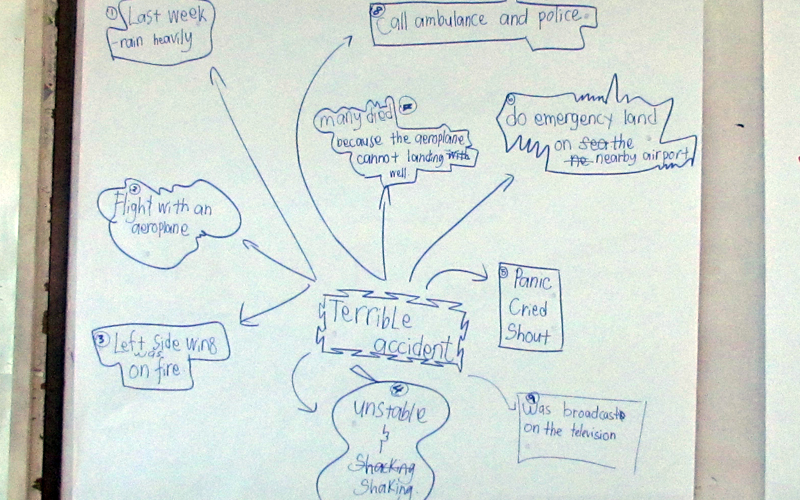 ① Last week
rain heavily
⑧ Call ambulance and police
many died
because the aeroplane
cannot landing with
well
do emergency land
on sea the
ne nearby airport
② Flight with an
aeroplane
⑤ Panic
Cried
Shout
Terrible
accident
③ Left side wing
was
on fire
④
unstable
Shacking
Shaking
⑨ Was broadcast
on the television